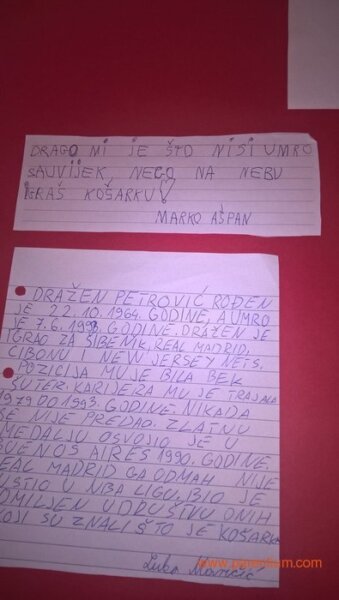 DRAGO MI JE ŠTO NISI UMRO
SAUVIJEK, NEGO NA NEBU
IGRAŠ KOŠARKU!
MARKO AŠPAN
DRAŽEN PETROVIĆ ROĐEN
JE 22.10.1964. GODINE, A UMRO
JE 7.6.1993. GODINE. DRAŽEN JE
IGRAO ZA ŠIBENIK, REAL MADRID,
CIBONU I NEW JERSEY NETS.
POZICIJA MU JE BILA BEK
ŠUTER. KARIJERA MU JE TRAJALA
1979 DO 1993. GODINE. NIKADA
SE NIJE PREDAO. ZLATNU
MEDALJU OSVOJIO JE U
BUENOS AIRES 1990. GODINE.
REAL MADRID GA ODMAH NIJE
PUSTIO U NBA LIGU. BIO JE
OMILJEN U DRUŠTVU ONIH
KOJI SU ZNALI ŠTO JE KOŠARKA
Luka